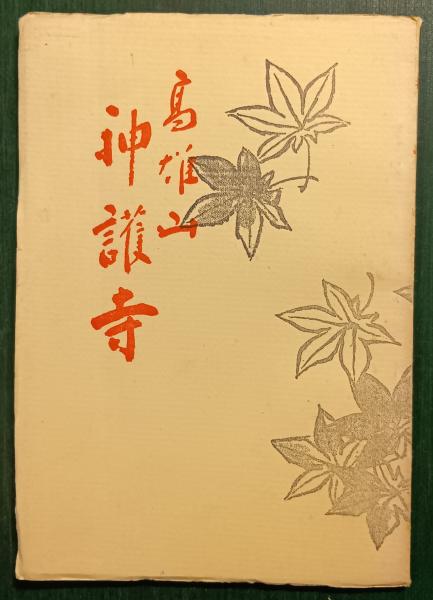 高雄山
神護寺